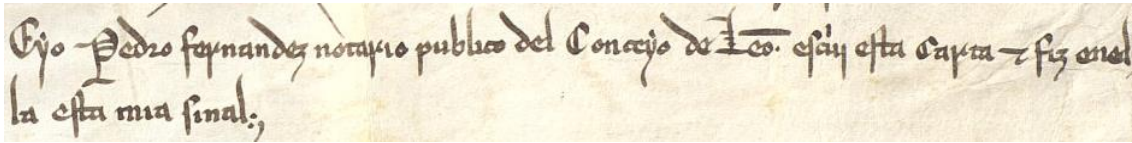 Eyo Pedro fernandez notario publico del Conceyo de Leo. escriui esta Carta ⁊ fiz enel
la esta mia sinal:,